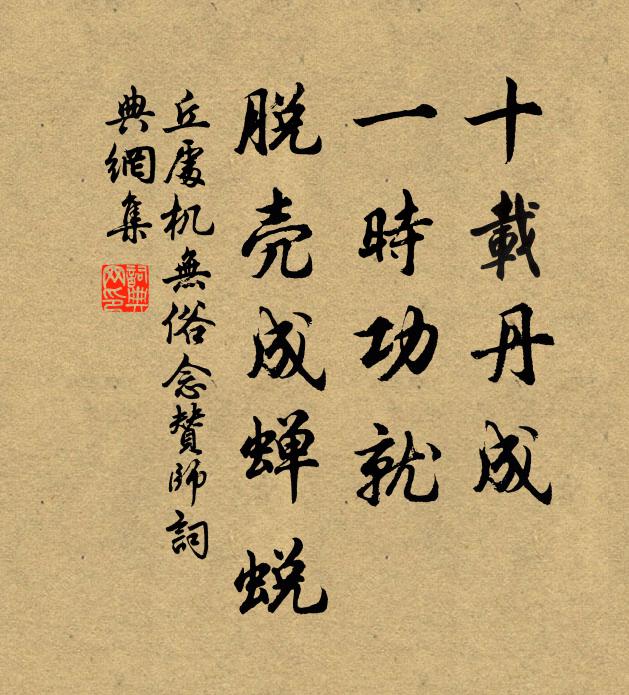 十載丹成
一時功就
脱壳成蝉蜕
丘處机無俗念贊師詞
典網集
詞典网印